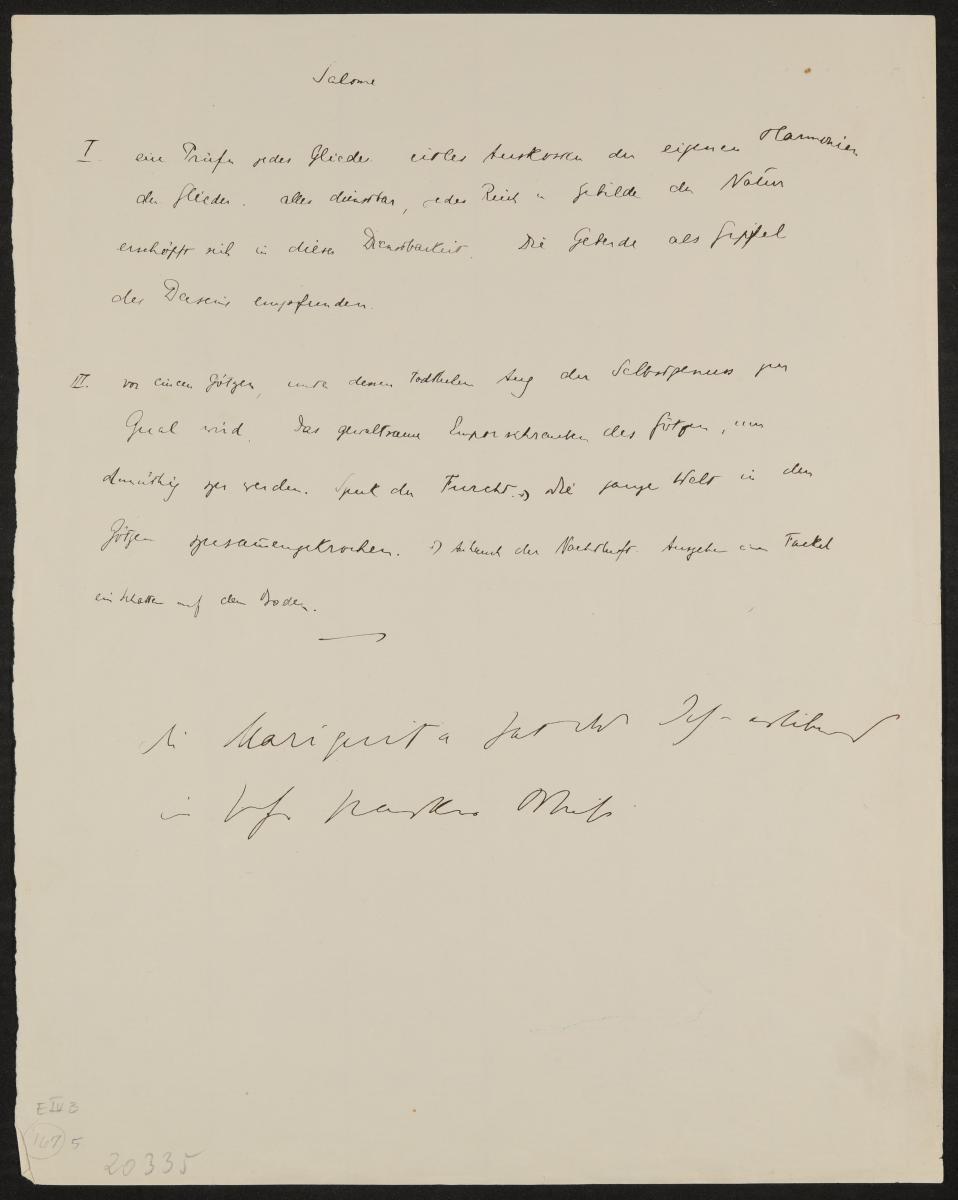 Salome
I. ein Prüfen jedes Gliedes eitles Auskosten der eigenen Harmonien
der Glieder. alles dienstbar, jedes Reich u Gebilde der Natur
erschöpft sich in dieser Dienstbarkeit. Die Geberde als Gipfel
des Daseins empfunden.
III. vor einem Götzen, unter dessen Aug der Selbstgenuss zur
Qual wird. Das gewaltsame des Götzen, um
zu werden. Spuk der Furcht. die ganze Welt in den
Götzen zusam̅engekrochen. Anhauch der Nachtluft. Ausgehen einer Fackel
ein Schatten auf dem Boden.
Mariquita hat
in
E IV 3
167 5
20335